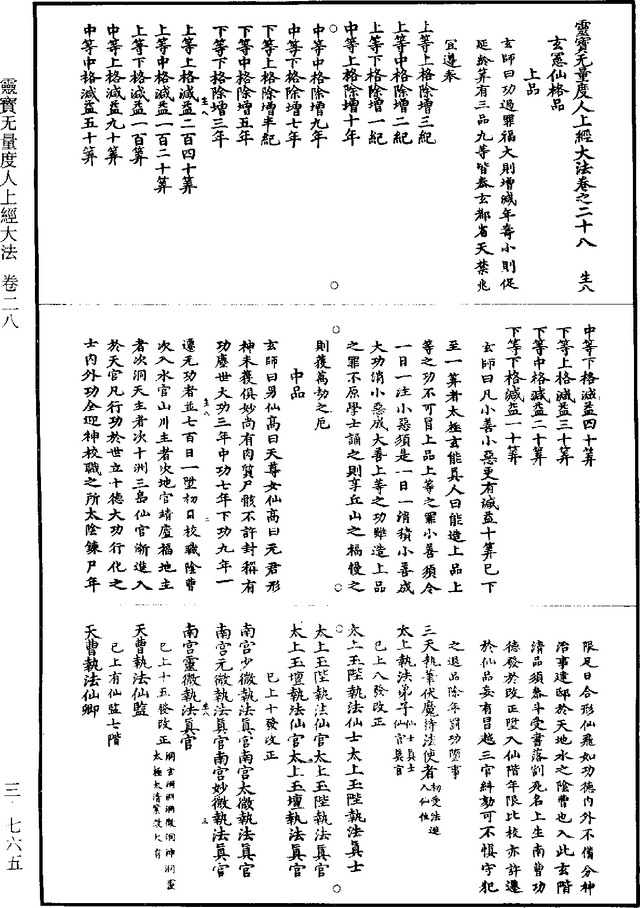 靈寶无量度人上經大法卷之二十八 生八
玄憲仙格品
上品
玄師曰功過罪福大則增減年壽小則促
延於算有三品九等皆叅玄都省天禁兆
宜遵奉
上等上格除增三紀
上等中格除增二紀
上等下格除增一紀
中等上格除增十年
中等中格除增九年
中等下格除增七年
下等上格除增半紀
下等中格除增五年
下等下格除增三年
上等上格減益二百四十算
上等中格減益一百二十算
上等下格減益一百算
中等上格減益九十算
中等中格減益五十算
中等下格減益四十算
下等上格減益三十算
下等中格減益二十算
下等下格減益一十算
玄師曰凡小善小惡更有減益十算已下
至一算者太極玄能真人曰能造上品上
等之功不可冒上品上等之罪小善須令
一日一注小惡須是一日一消積小善成
大功消小惡成大善上等之功難造上品
之罪不原學士誦之則享丘山之福慢之
則獲萬劫之厄
中品
玄師曰男仙高曰天尊女仙高曰元君形
神未獲俱妙尚有肉質尸骸不許封稱有
功塵世大功三年中功七年下功九年一
遷无功者並七百日一墜初日校職陰曹
次入水官山川主者次地官靖廬福地主
者次洞天主者次十洲三島仙官漸進入
於天官凡行功於世立十德大功行化之
士內外功全迎神校職之所太陰鍊尸年
限足日合形仙飛如功德內外不備分神
治事建邸於天地水之陰曹也入此玄階
清品須叅斗受書落割死名上生南曹功
德發於改正墜入仙階年限比校亦許遷
於仙品妄有冒越三官糾劾可不慎守犯
之退品除年罰功墮事
三天執筆伏魔待法使者初受法進入仙位
太上執法弟子仙士真士仙官真官
已上八發改正
太上玉陛執法仙士太上玉陛執法真士
太上玉陛執法仙官太上玉陛執法真官
太上玉壇執法仙官太上玉壇執法真官
已上十發改正
南宮少微執法真官南宮太微執法真官
南宮元微執法真官南宮妙微執法真官
南宮靈微執法真官
已上十五發改正
天曹執法仙監
已上有仙監七階
天曹執法仙卿
靈寶无量度人上經大法 卷二八
三・七六五